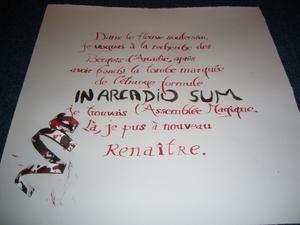 Dans le fleuve souterrain,
je voguais à la recherche des
Bergers d'Arcadie, après
avoir franchi la tombe marquée
de l'étrange formule
IN ARCADIO SUM
je trouvais l'Assemblée Magique.
Là, je pus à nouveau
RENAîTRE.